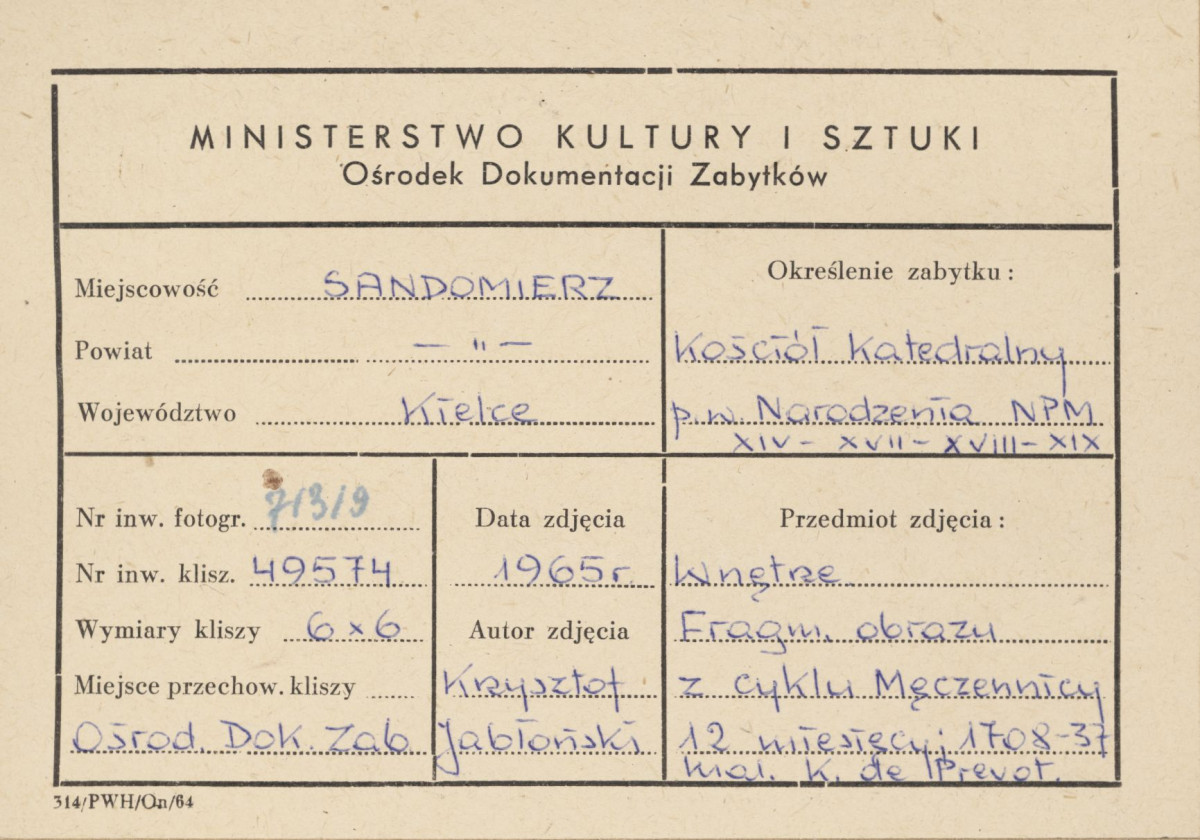 MINISTERSTWO KULTURY I SZTUKI
Ośrodek Dokumentacji Zabytków
Miejscowość SANDOMIERZ
Powiat — " —
Województwo Kielce
Określenie zabytku:
Kościół Katedralny
p.w. Narodzenia NPM
XIV - XVII - XVIII - XIX
Nr inw. fotogr. 7/3/9
Nr inw. klisz. 49574
Wymiary kliszy 6 x 6
Miejsce przechow. kliszy
Ośrod. Dok. Zab
Data zdjęcia
1965r.
Autor zdjęcia
Krzysztof
Jabłoński
Przedmiot zdjęcia:
Wnętrze
Fragm. obrazu
z cyklu Męczennicy
12 miesięcy; 1708-37
mal. K. de Prevot.
314/PWH/On/64